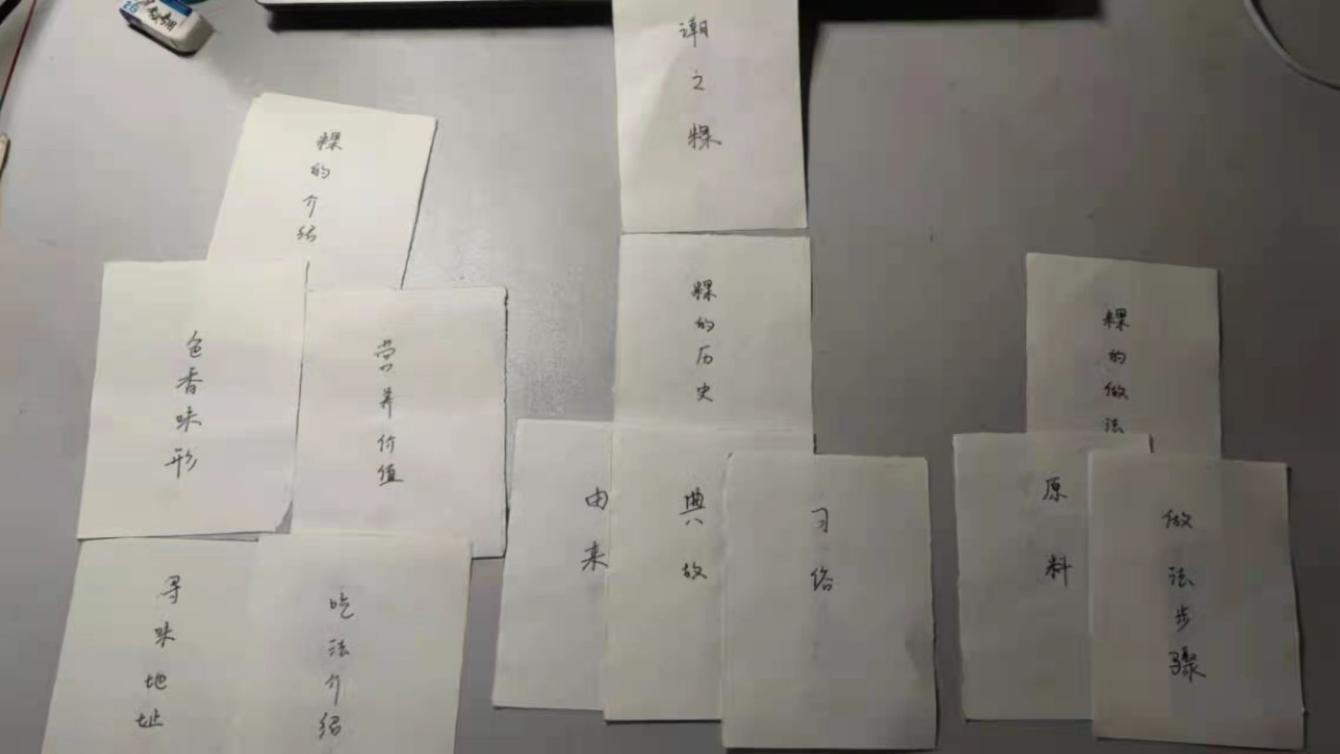 潮之粿
粿的介绍
色香味形
营养价值
寻味地址
吃法介绍
粿的历史
由来
典故
习俗
粿的做法
原料
做法步骤